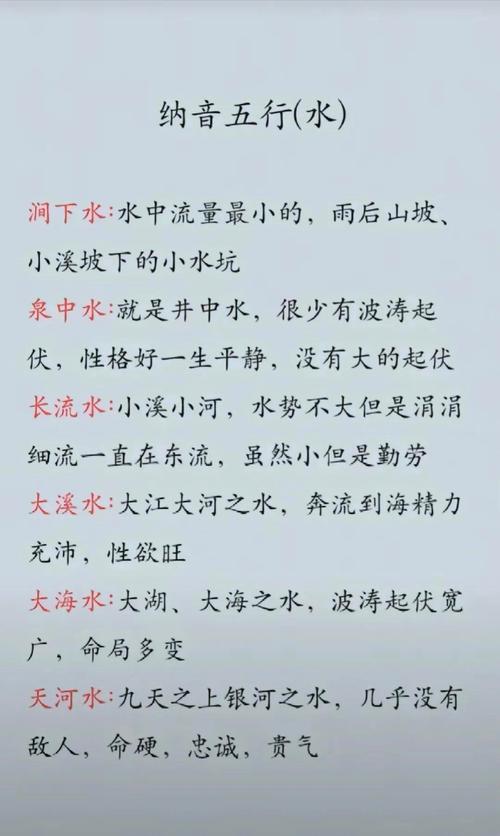 纳音五行(水)
涧下水:水中流量最小的，雨后山坡、
小溪坡下的小水坑
泉中水:就是井中水，很少有波涛起
伏，性格好一生平静，没有大的起伏
长流水:小溪小河，水势不大但是涓涓
细流一直在东流，虽然小但是勤劳
大溪水:大江大河之水，奔流到海精力
充沛，性欲旺
大海水:大湖、大海之水，波涛起伏宽
广，命局多变
天河水:九天之上银河之水，几乎没有
敌人，命硬，忠诚，贵气